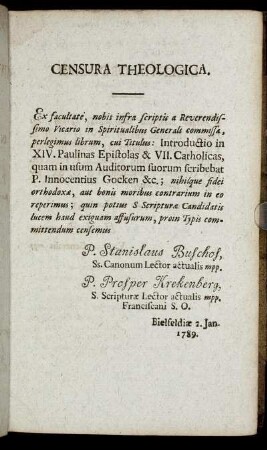 CENSURA THEOLOGICA.
Ex facultate, nobis infra scriptis a Reverendis-
simo Vicario in Spiritualibus Generali commissa,
perlegimus librum, cui Titulus: Introductio in
XIV. Paulinas Epistolas & VII. Catholicas,
quam in usum Auditorum suorum scribebat
P. Innocentius Gocken &c.; nihilque fidei
orthodoxæ, aut bonis moribus contrarium in eo
reperimus; quin potius S Scripturæ Candidatis
lucem haud exiguam affusurum, proin Typis com-
mittendum censemus
P. Stanislaus Buschof,
Ss. Canonum Lector actualis mpp.
P. Prosper Krekenberg,
S. Scripturæ Lector actualis mpp.
Franciscani S. O.
Bielfeldiæ 2. Jan.
1789.